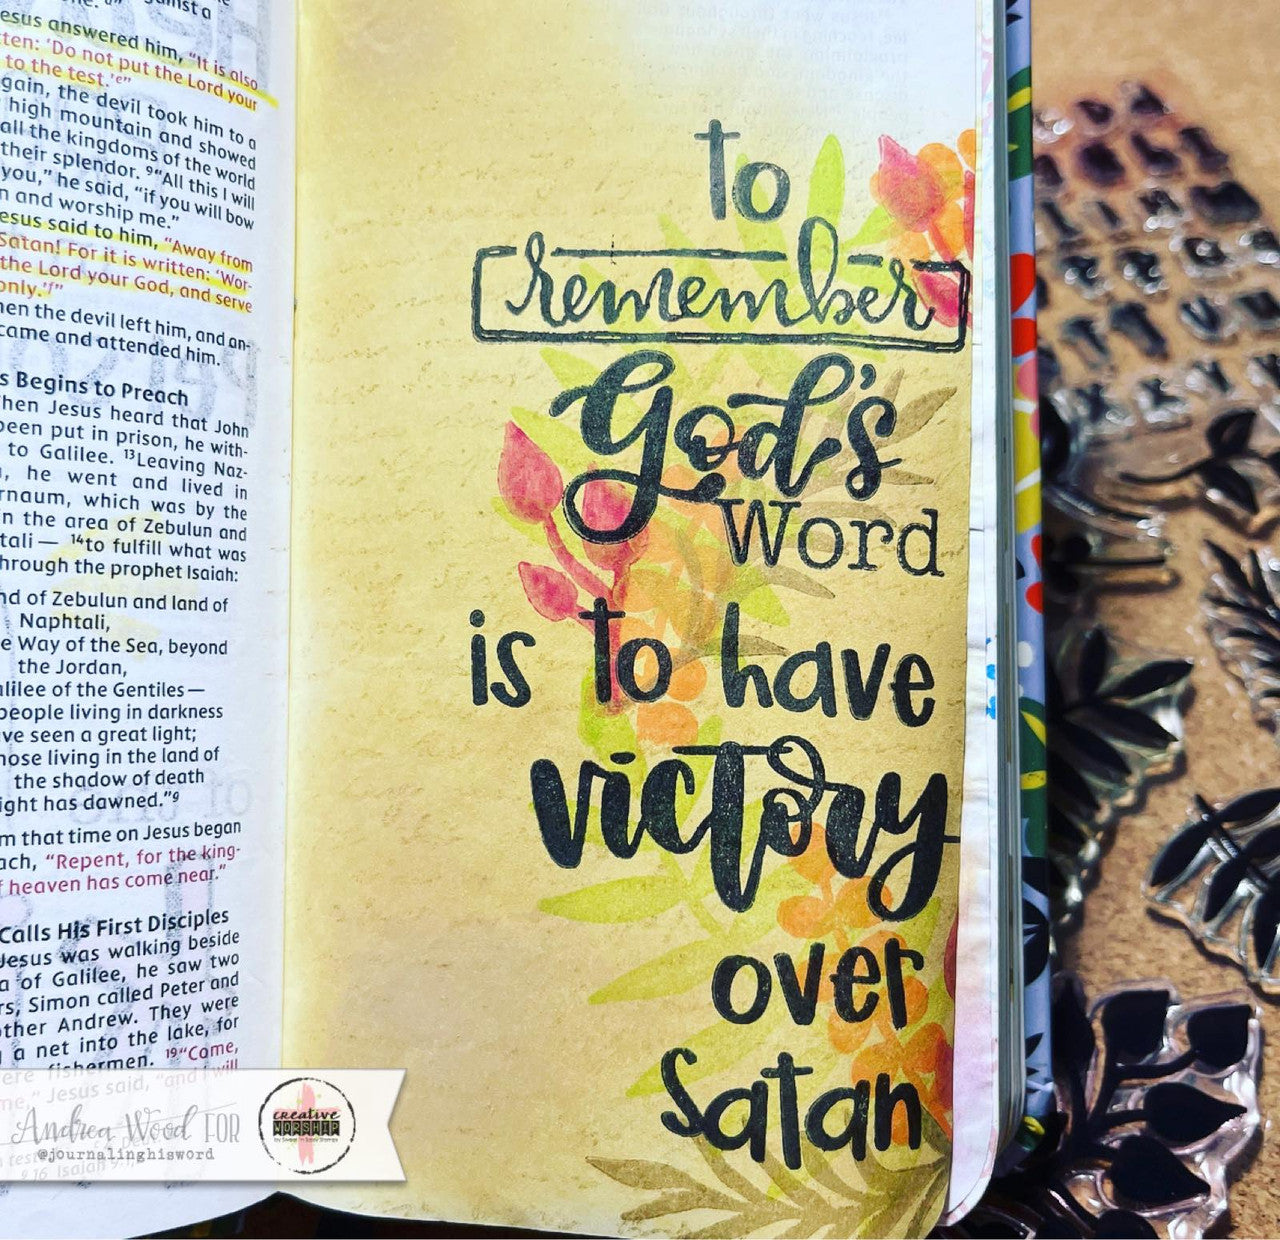 against a
esus answered him, "It is also
tten: 'Do not put the Lord your
to the test.'ᵉ"
gain, the devil took him to a
high mountain and showed
all the kingdoms of the world
their splendor. ⁹"All this I will
you," he said, "if you will bow
n and worship me."
esus said to him, "Away from
Satan! For it is written: 'Wor-
the Lord your God, and serve
only.'ᶠ"
hen the devil left him, and an-
came and attended him.
s Begins to Preach
hen Jesus heard that John
been put in prison, he with-
to Galilee. ¹³Leaving Naz-
, he went and lived in
rnaum, which was by the
n the area of Zebulun and
tali— ¹⁴to fulfill what was
hrough the prophet Isaiah:
nd of Zebulun and land of
Naphtali,
e Way of the Sea, beyond
the Jordan,
alilee of the Gentiles—
people living in darkness
ve seen a great light;
hose living in the land of
the shadow of death
ight has dawned."ᵍ
m that time on Jesus began
each, "Repent, for the king-
f heaven has come near."
Calls His First Disciples
Jesus was walking beside
a of Galilee, he saw two
rs, Simon called Peter and
other Andrew. They were
g a net into the lake, for
ere fishermen. ¹⁹"Come,
me," Jesus said, "and I will
to
remember
God's
Word
is to have
victory
over
Satan
Andrea Wood FOR
@journalinghisword
creative
WORSHIP
9:16 Isaiah 9:1,